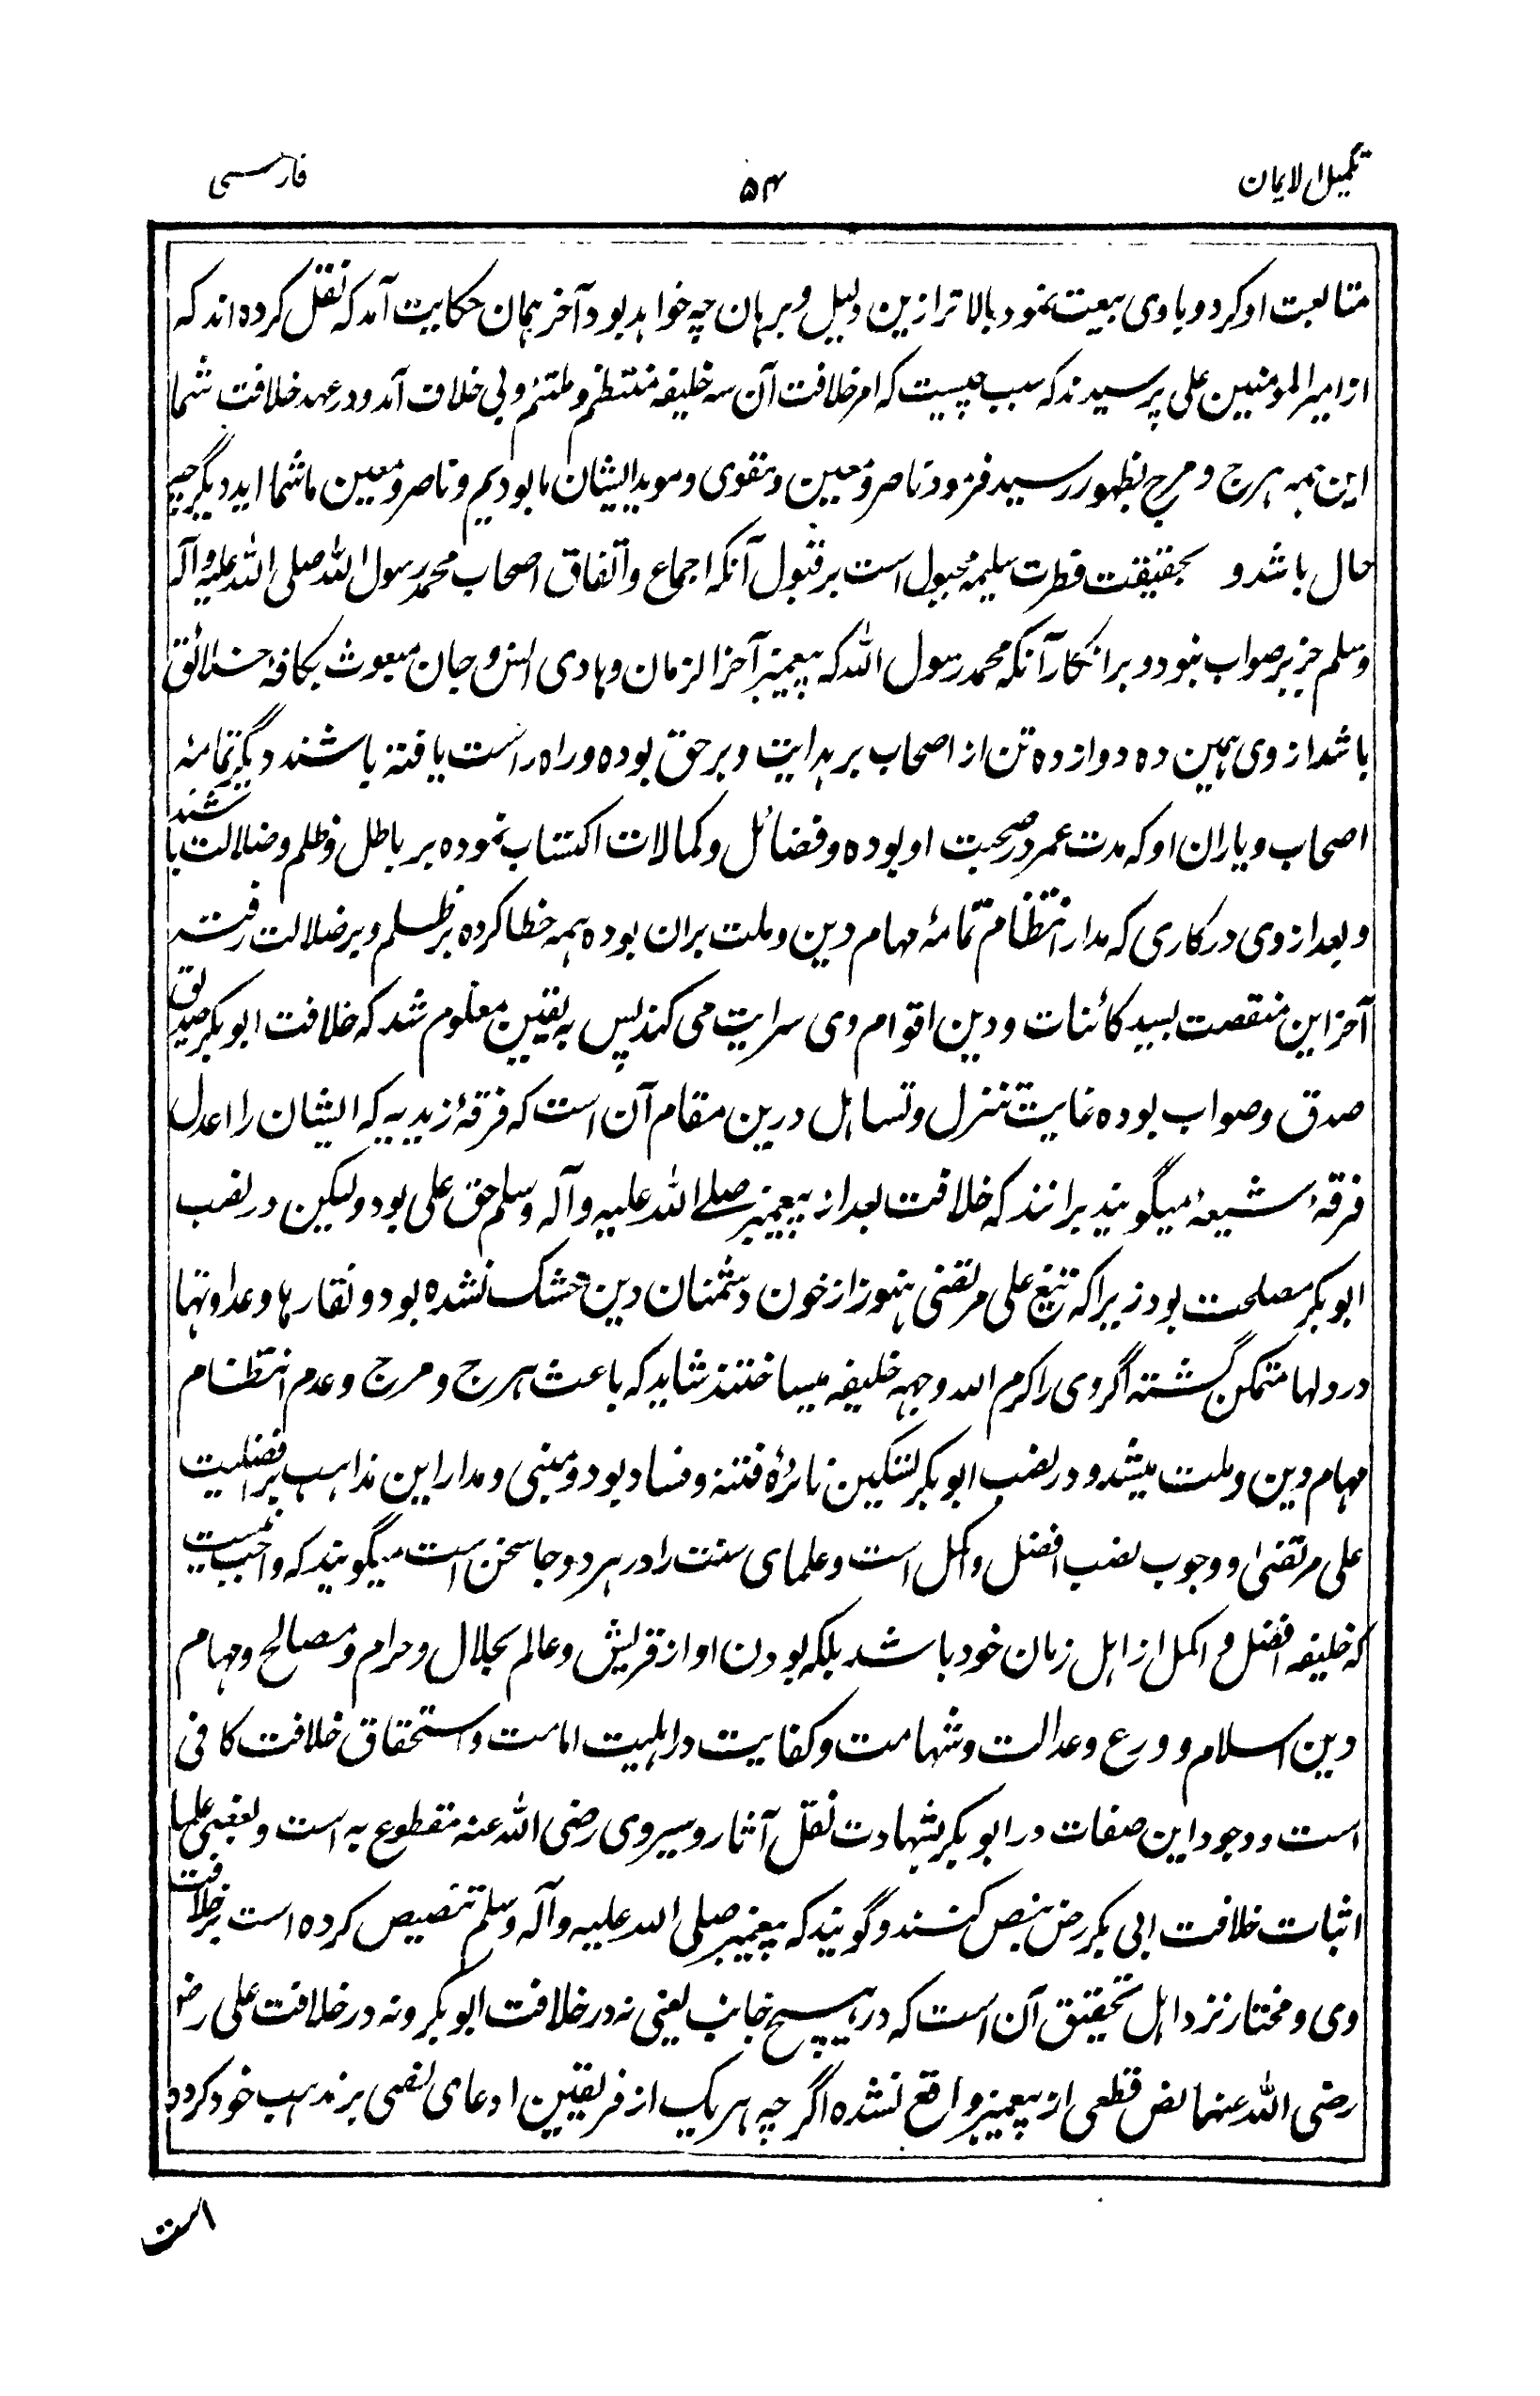 تکمیل الایمان
۵۴
فارسی
متابعت او کرد و با وی بیعت نمود بالاتر ازین دلیل و برهان چه خواهد بود آخر همان حکایت آمد که نقل کرده اند که
از امیر المومنین علی پرسیدند که سبب چیست که امر خلافت آن سه خلیفه منتظم و ملتئم و بی خلاف آمد و در عهد خلافت شما
این همه هرج و مرج بظهور رسید فرمود ناصر و معین و مقوی و موید ایشان ما بودیم و ناصر و معین ما شما اید دیگر چه
حال باشد و بحقیقت فطرت سلیمه مجبول است بر قبول آنکه اجماع و اتفاق اصحاب محمد رسول الله صلی الله علیه و آله
وسلم جز بر صواب نبود و بر انکار آنکه محمد رسول الله که پیغمبر آخر الزمان و هادی انس و جان مبعوث بکافهٔ خلائق
باشد از وی همین ده دوازده تن از اصحاب بر هدایت و بر حق بوده و راه راست یافته باشند دیگر تمامهٔ
اصحاب و یاران او که مدت عمر در صحبت او بوده و فضائل و کمالات اکتساب نموده بر باطل و ظلم و ضلالت باشند
و بعد از وی در کاری که مدار انتظام تمامهٔ مهام دین و ملت بران بوده همه خطا کرده بر ظلم و بر ضلالت رفته
آخر این منقصت بسید کائنات و دین اقوام وی سرایت می کند پس به یقین معلوم شد که خلافت ابو بکر صدیق
صدق و صواب بوده غایت تنزل و تساهل درین مقام آن است که فرقهٔ زیدیه که ایشان را اعدل
فرقهٔ شیعه میگویند برانند که خلافت بعد از پیغمبر صلے الله علیه و آله وسلم حق علی بود ولیکن در نصب
ابو بکر مصلحت بود زیرا که تیغ علی مرتضی هنوز از خون دشمنان دین خشک نشده بود و نقارها و عداوتها
در دلها متمکن گشته اگر وی را کرم الله وجهه خلیفه میساختند شاید که باعث هرج و مرج و عدم انتظام
مهام دین و ملت میشد و در نصب ابو بکر تسکین نائرهٔ فتنه و فساد بود و مبنی و مدار این مذاهب بر افضلیت
علی مرتضیٰ و وجوب نصب افضل و اکمل است و علمای سنت را در هر دو جا سخن است میگویند که واجب نیست
که خلیفه افضل و اکمل از اهل زمان خود باشد بلکه بودن او از قریش و عالم بحلال و حرام و مصالح و مهام
دین اسلام و ورع و عدالت و شهامت و کفایت در اهلیت امامت و استحقاق خلافت کافی
است و وجود این صفات در ابو بکر بشهادت نقل آثار و سیر وی رضی الله عنه مقطوع به است و بعضی علما
اثبات خلافت ابی بکر رض بنص کنند و گویند که پیغمبر صلی الله علیه و آله وسلم تنصیص کرده است بر خلافت
وی و مختار نزد اهل تحقیق آن است که در هیچ جانب یعنی نه در خلافت ابو بکر و نه در خلافت علی رض
رضی الله عنهما نص قطعی از پیغمبر واقع نشده اگر چه هر یک از فریقین ادعای نصی بر مذهب خود کرده
است